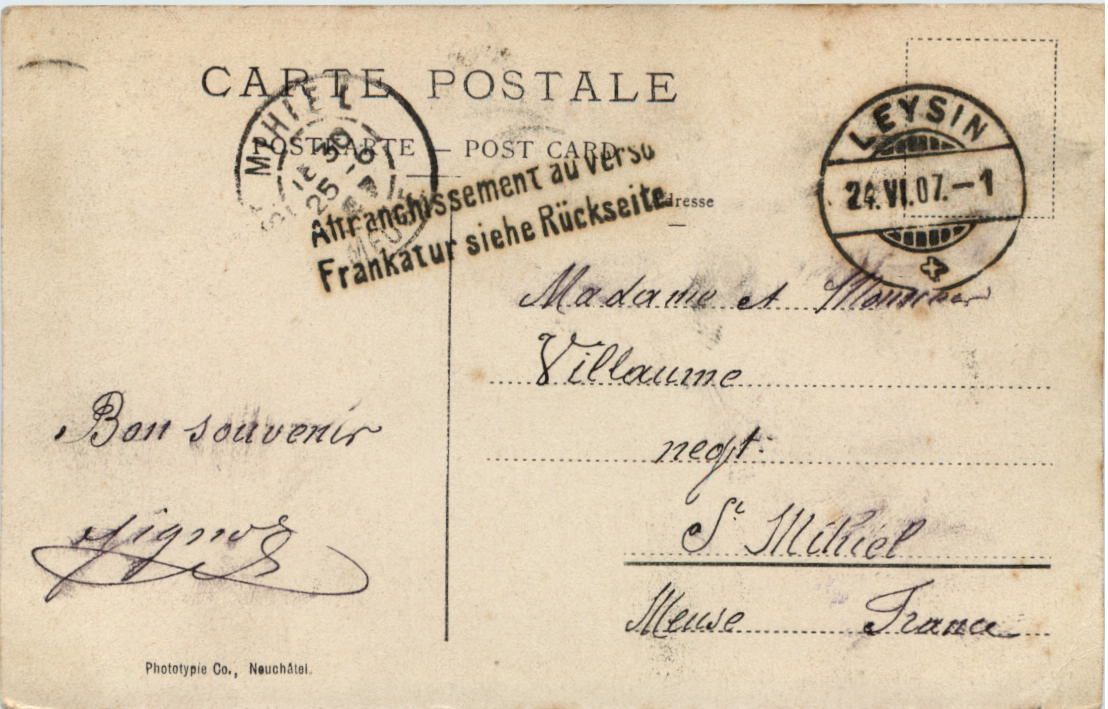 CARTE POSTALE
POSTKARTE — POST CARD
Affranchissement au verso
Frankatur siehe Rückseite.
LEYSIN
24.VI.07.-1
MIHIEL
25
Madame et Monsieur
Villaume
negt.
St. Mihiel
Meuse France
Bon souvenir
Phototypie Co., Neuchâtel.